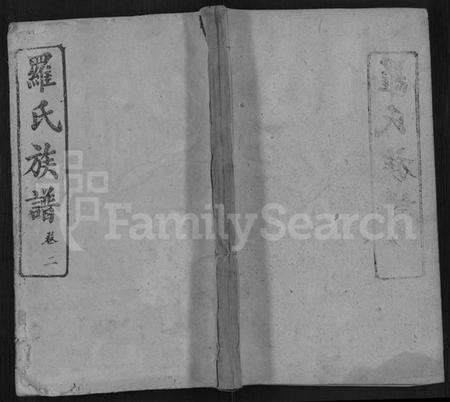 羅氏族譜 卷二
FamilySearch